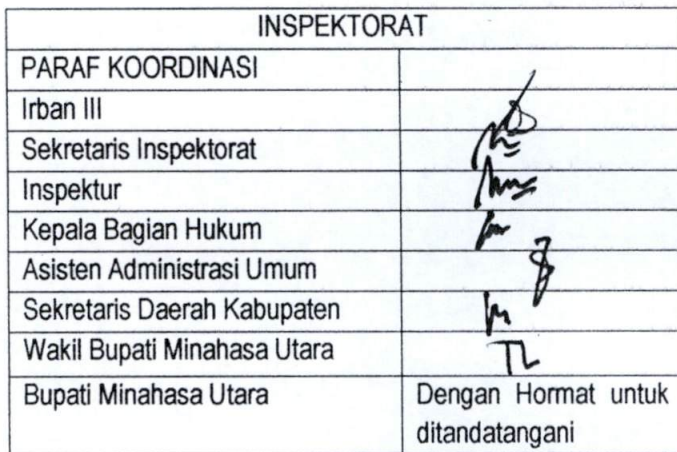 INSPEKTORAT
PARAF KOORDINASI
Irban III
Sekretaris Inspektorat
Inspektur
Kepala Bagian Hukum
Asisten Administrasi Umum
Sekretaris Daerah Kabupaten
Wakil Bupati Minahasa Utara
Bupati Minahasa Utara
Dengan Hormat untuk
ditandatangani